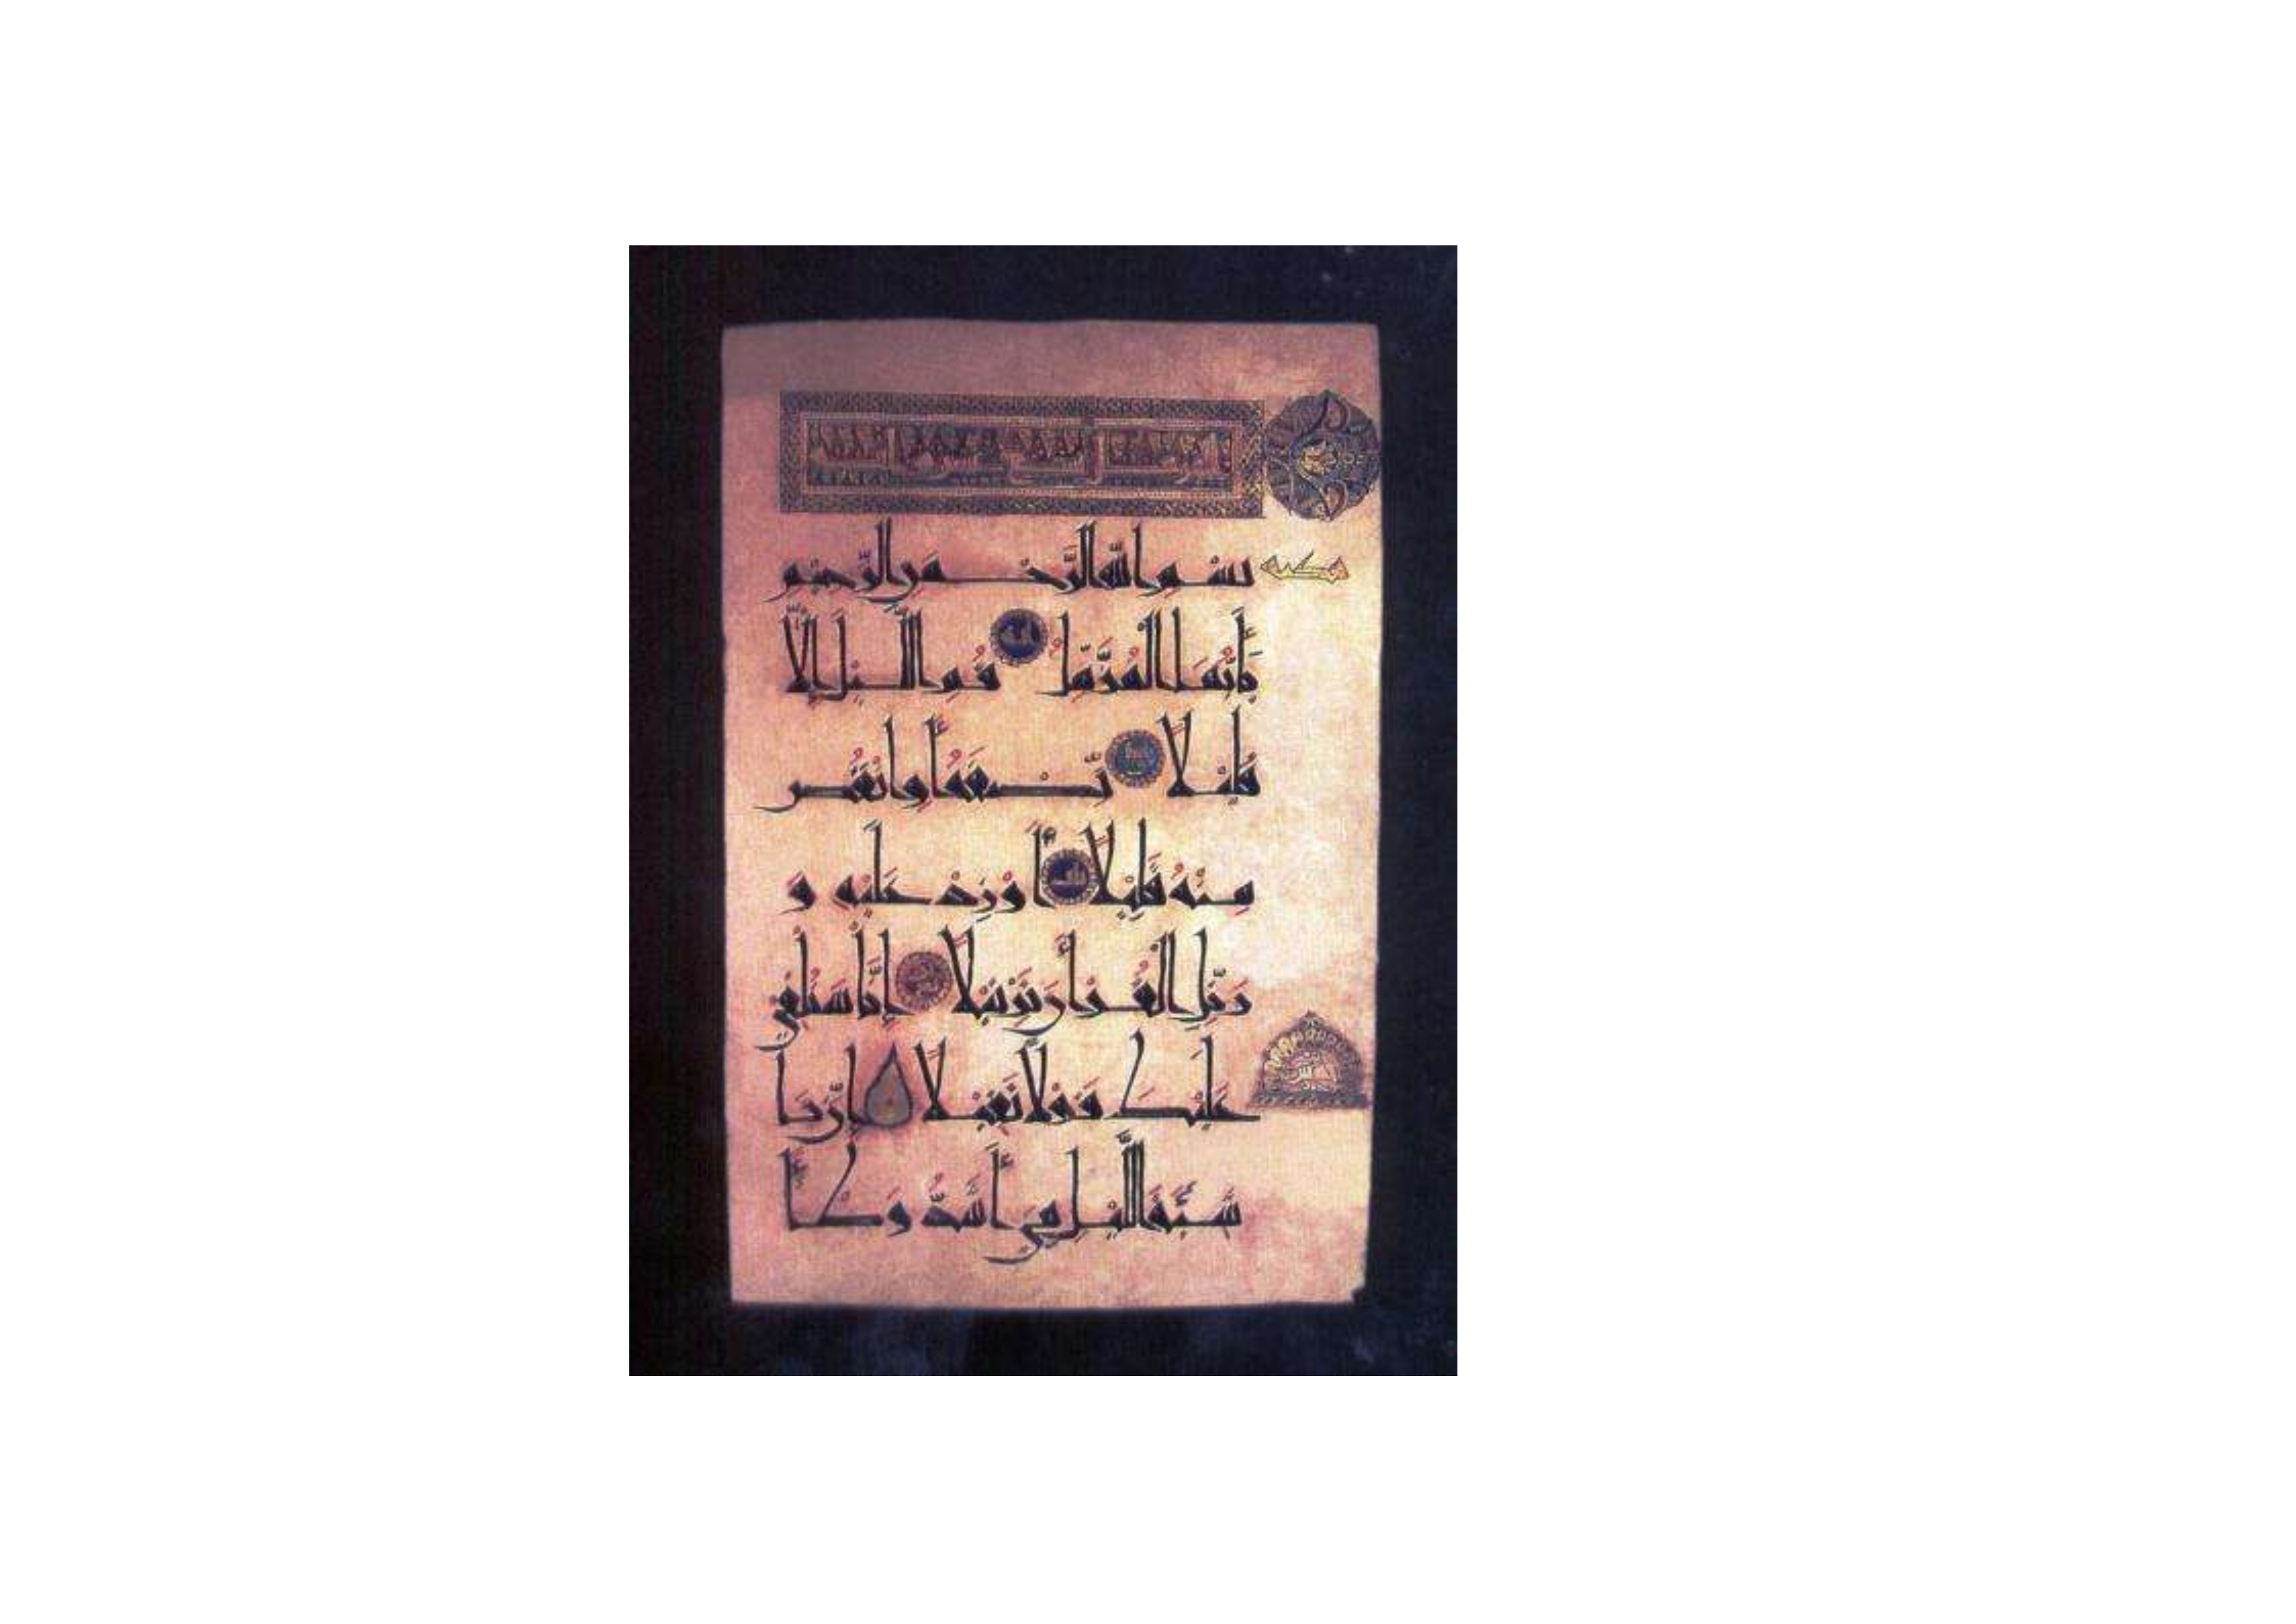 مكية
بِسْمِ اللَّهِ الرَّحْمَنِ الرَّحِيمِ
يَأَيُّهَا الْمُزَّمِّلُ قُمِ اللَّيْلَ إِلَّا
قَلِيلًا نِّصْفَهُ أَوِ انْقُصْ
مِنْهُ قَلِيلًا أَ وْ زِدْ عَلَيْهِ وَ
رَتِّلِ الْقُرْأَنَ تَرْتِيلًا إِنَّا سَنُلْقِي
عَلَيْكَ قَوْلًا ثَقِيلًا إِنَّ نَا
شِئَةَ اللَّيْلِ هِيَ أَشَدُّ وَطْأً